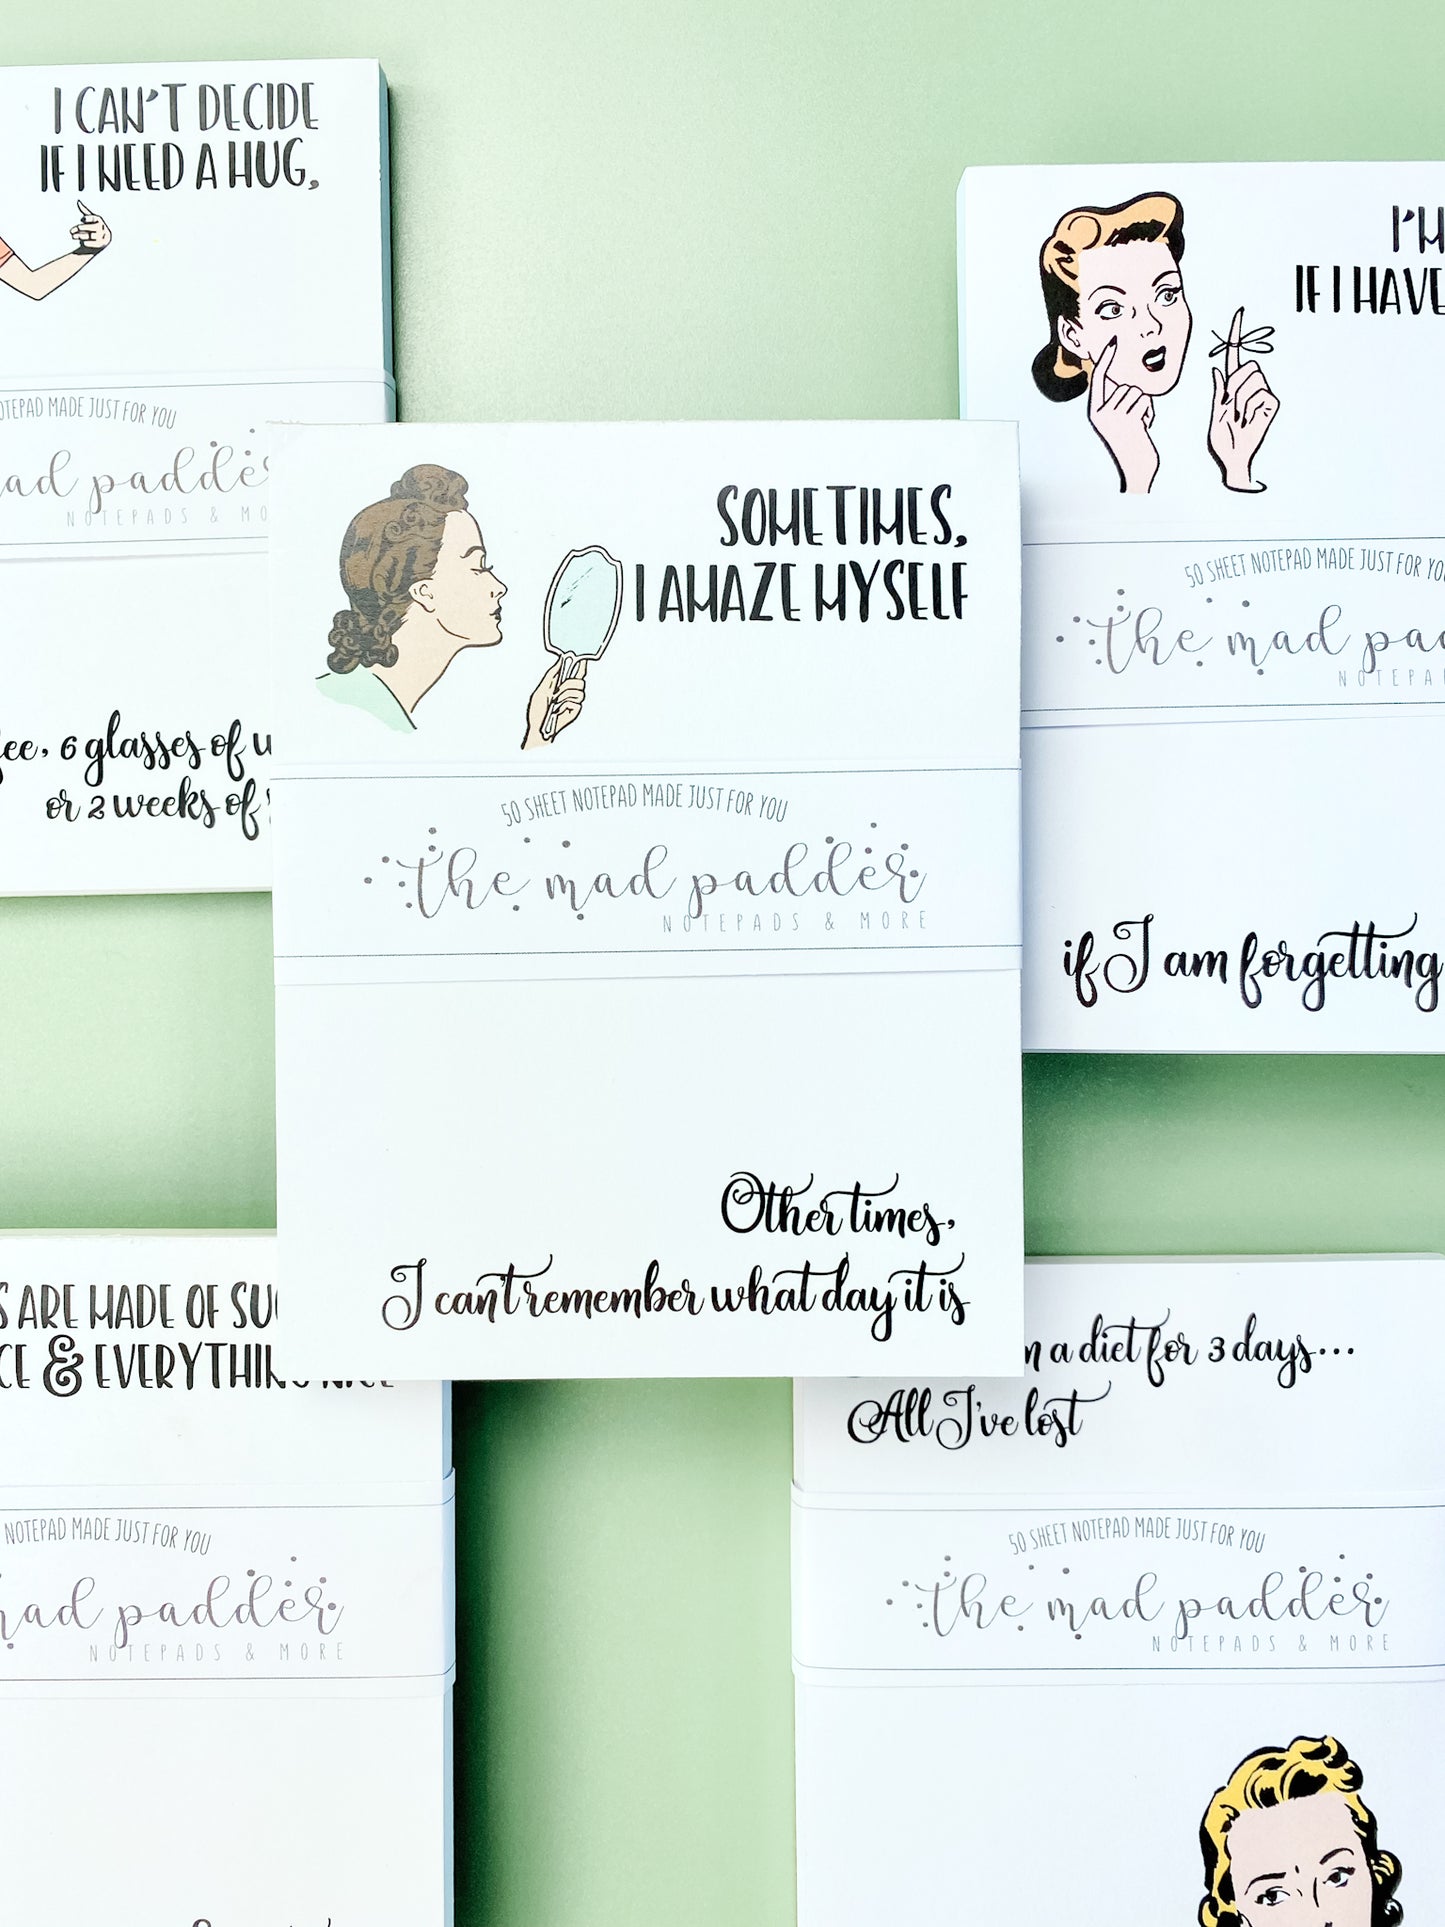 I CAN'T DECIDE
IF I NEED A HUG,
NOTEPAD MADE JUST FOR YOU
mad padder
NOTEPADS & MO
6 glasses of
or 2 weeks of
I'M
IF I HAVE
50 SHEET NOTEPAD MADE JUST FOR YOU
the mad pad
NOTEPA
if I am forgetting
SOMETIMES,
I AMAZE MYSELF
50 SHEET NOTEPAD MADE JUST FOR YOU
the mad padder
NOTEPADS & MORE
Other times,
I can't remember what day it is
ARE MADE OF SU
& EVERYTHING NICE
NOTEPAD MADE JUST FOR YOU
mad padder
NOTEPADS & MORE
a diet for 3 days...
All I've lost
50 SHEET NOTEPAD MADE JUST FOR YOU
the mad padder
NOTEPADS & MORE